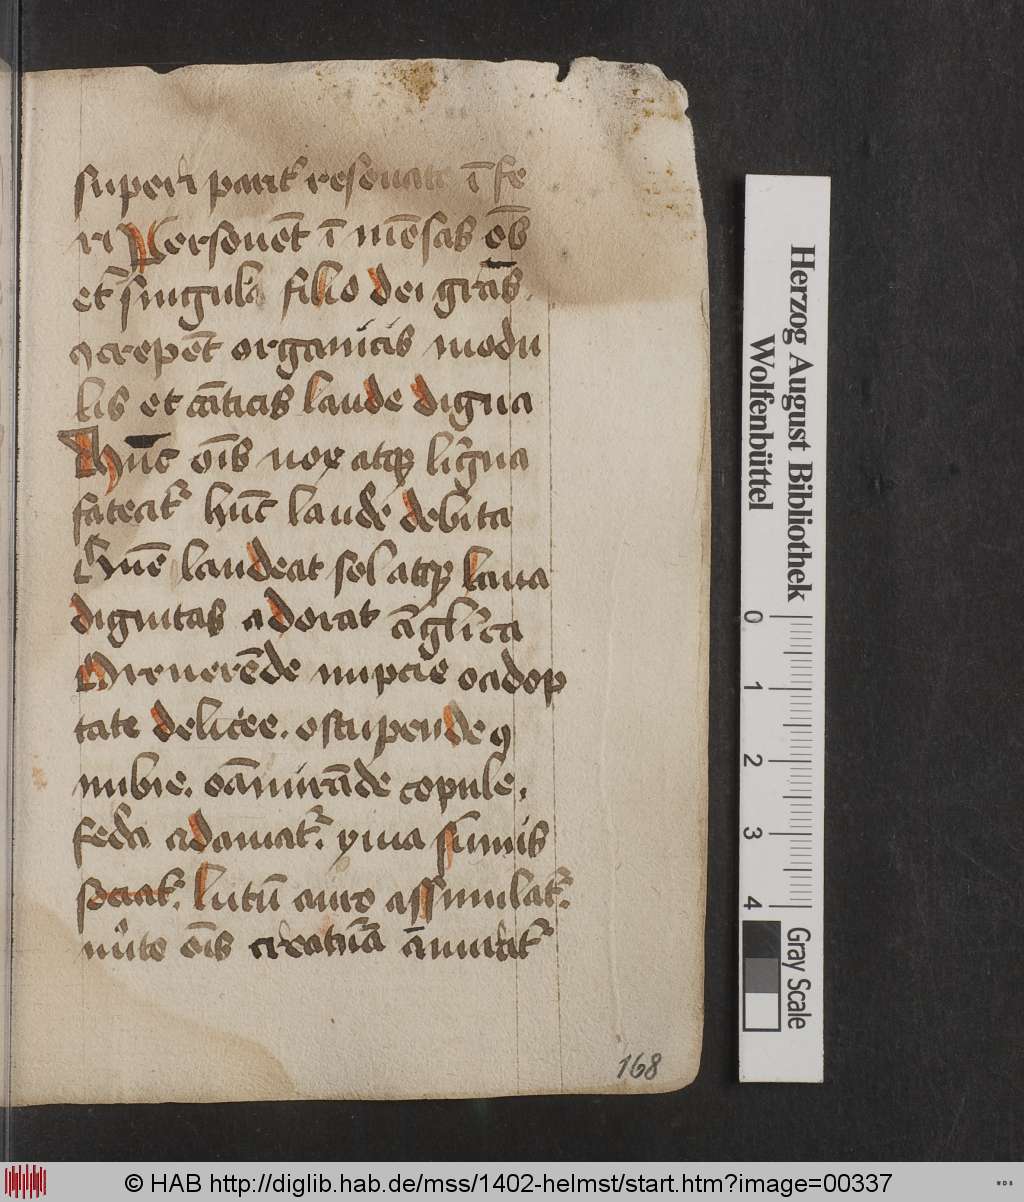 superi parit᷑ resonate ī fe
ri Personēt ī mēsas oēs
et singula filio dei gr̄as.
ꝯcrepēt organicis modu
lis et cāticis laude digna
Hūc oīs vox atqꝫ lingua
fateat᷑ hūc laude debita
Hūc laudeat sol atqꝫ luna
dignitas adorat āglica
O reuerēde nupcie o adop
tate delicee. o stupende ꝯ
nubie. o āmirāde copule.
feda adamat᷑. yma sūmis
sociat᷑. lutū auro assimilat᷑.
mīto oīs creatura āmirat᷑
168
Herzog August Bibliothek
Wolfenbüttel
0 1 2 3 4
Gray Scale
© HAB http://diglib.hab.de/mss/1402-helmst/start.htm?image=00337